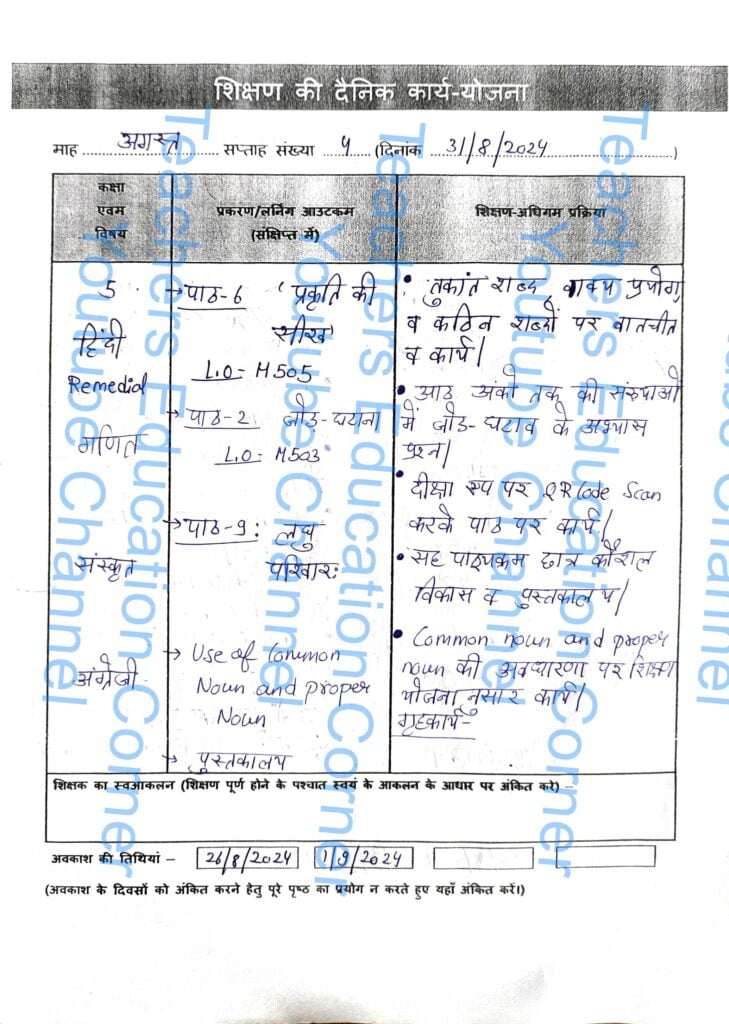 शिक्षण की दैनिक कार्य-योजना
माह ..... अगस्त ..... सप्ताह संख्या ... 4 ... (दिनांक ... 31/8/2024 ...)
कक्षा एवम विषय
प्रकरण/लर्निंग आउटकम (संक्षिप्त में)
शिक्षण-अधिगम प्रक्रिया
5
हिंदी
Remedial
गणित
संस्कृत
अंग्रेजी
→ पाठ-6 'प्रकृति की
सीख'
L.O- H505
→ पाठ-2 जोड़-घटाना
L.O- M503
→ पाठ-9: लघु
परिवारः
→ Use of Common
Noun and proper
Noun
→ पुस्तकालय
• तुकांत शब्द, वाक्य प्रयोग,
व कठिन शब्दों पर बातचीत
व कार्य।
• आठ अंको तक की संख्याओं
में जोड़-घटाव के अभ्यास
प्रश्न।
• दीक्षा एप पर QR Code Scan
करके पाठ पर कार्य।
• सह पाठ्यक्रम छात्र कौशल
विकास व पुस्तकालय।
• Common noun and proper
noun की अवधारणा पर शिक्षण
योजनानुसार कार्य।
गृहकार्य-
शिक्षक का स्वआकलन (शिक्षण पूर्ण होने के पश्चात स्वयं के आकलन के आधार पर अंकित करे) –
अवकाश की तिथियां – 26/8/2024 1/9/2024
(अवकाश के दिवसों को अंकित करने हेतु पूरे पृष्ठ का प्रयोग न करते हुए यहाँ अंकित करें।)
Teachers Education Corner
Youtube Channel
Teachers Education Corner
Youtube Channel
Teachers Education Corner
Youtube Channel